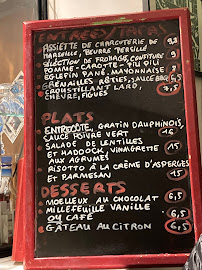 ASSIETTE DE CHARCUTERIE DE
MARSEILLE, BEURRE PERSILLÉ
SÉLECTION DE FROMAGE, CONFITURE 9
POMME-CAROTTE-THYM
EGLEFIN PANÉ, MAYONNAISE 7
GRENAILLES RÔTIES, SAUCE
CROUSTILLANT LARD,
CHÈVRE, FIGUES
PLATS
ENTRECÔTE, GRATIN DAUPHINOIS,
SAUCE POIVRE VERT 16
SALADE DE LENTILLES
ET HADDOCK, VINAIGRETTE 15
AUX AGRUMES
RISOTTO À LA CRÈME D'ASPERGES 15
ET PARMESAN
DESSERTS
MOELLEUX AU CHOCOLAT 6,5
MILLEFEUILLE VANILLE
OU CAFÉ 6,5
GÂTEAU AU CITRON 6,5